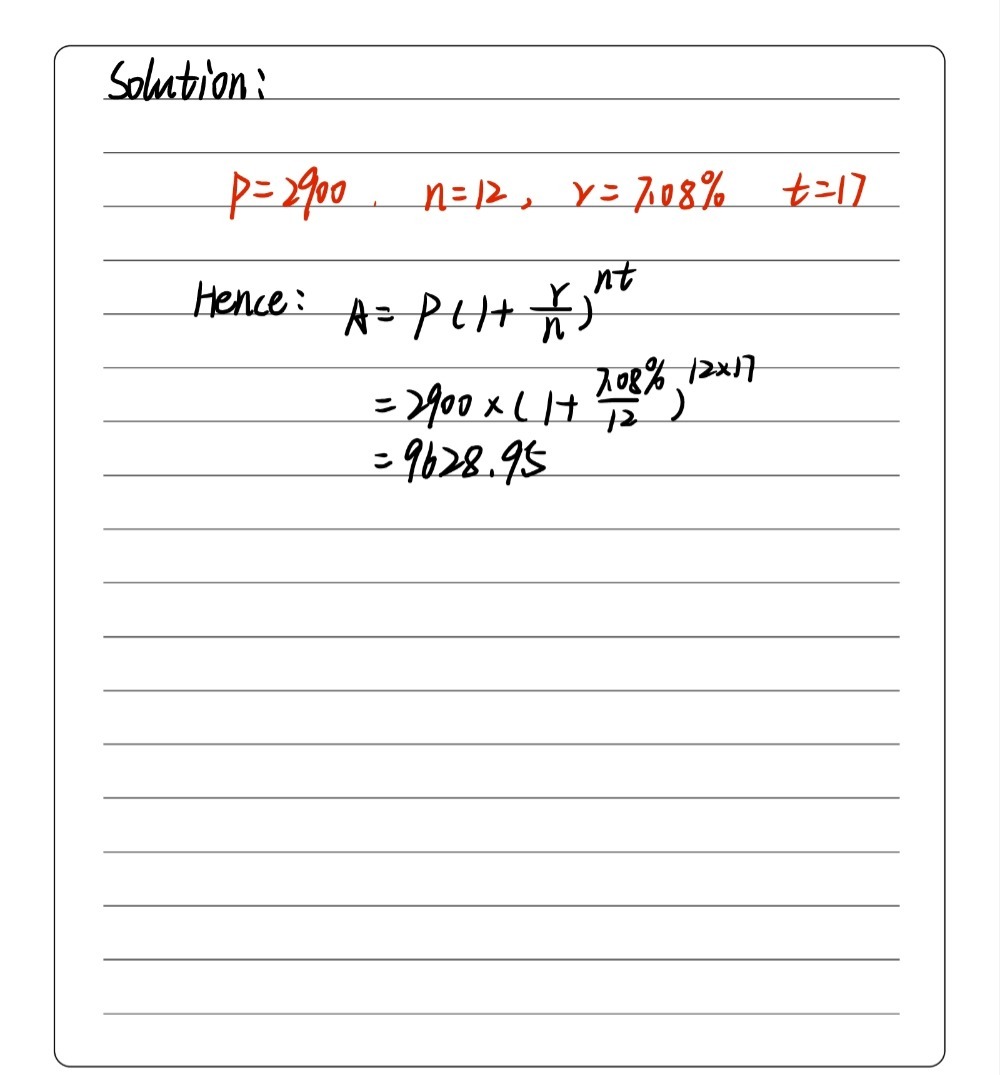 Solution:
P=2900 . n=12, r=7.08% t=17
Hence: A= P(1+ r/n)^nt
=2900×(1+ 7.08%/12)^12×17
=9628.95